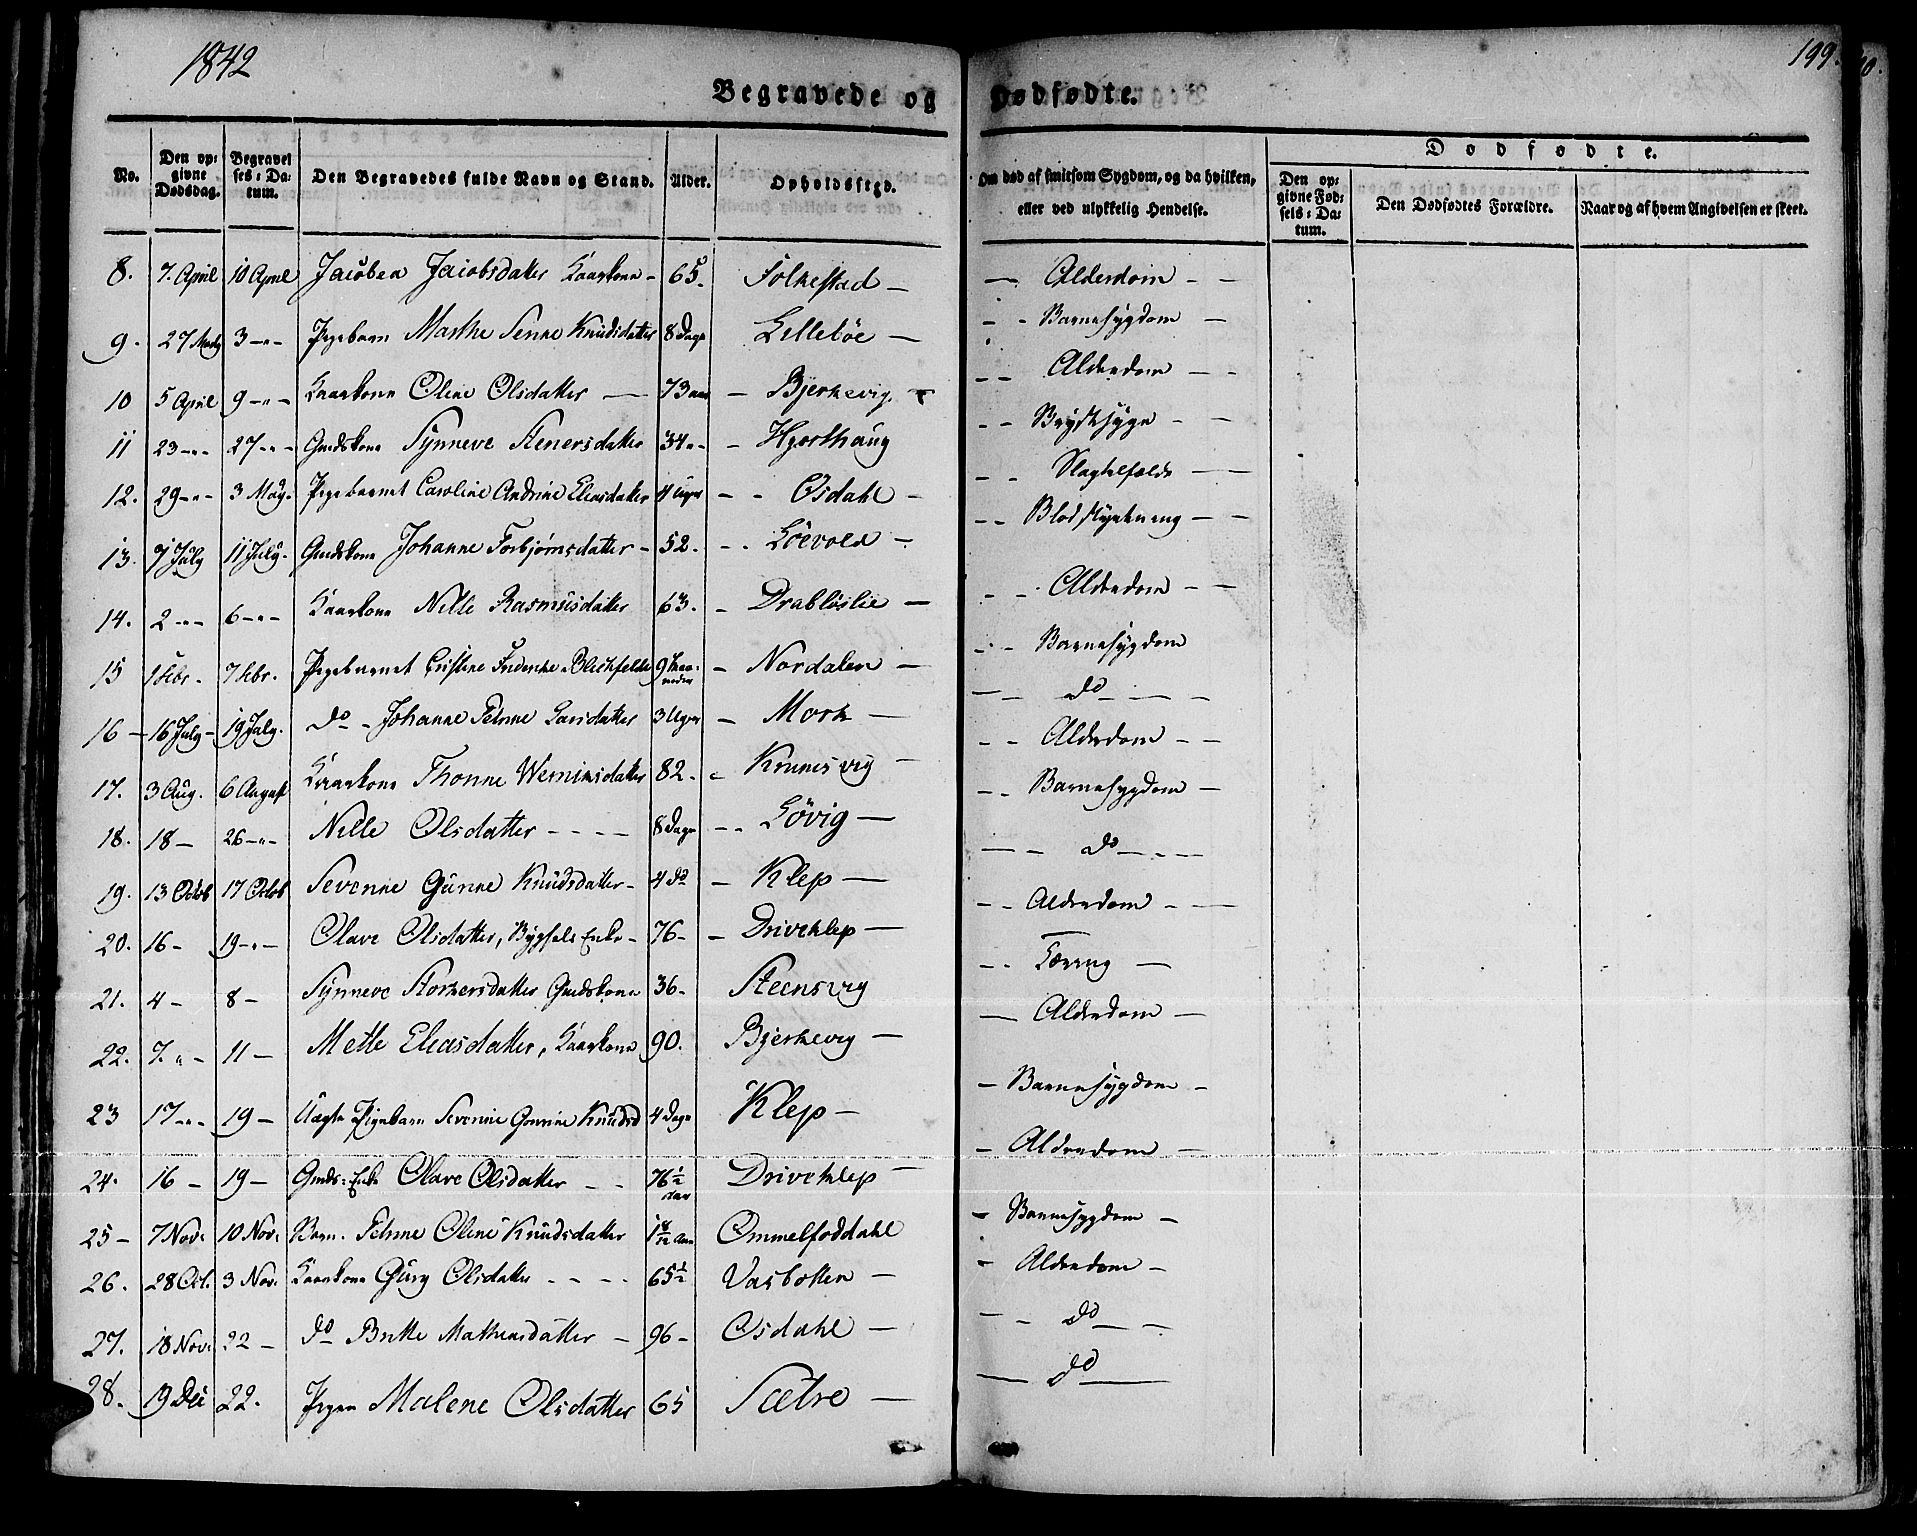 1842
199.
Begravede og Dødfødte.
No.
Den op:
givne
Dødsdag.
Begravel
ses: Da:
tum.
Den Begravedes fulde Navn og Stand.
Alder.
Opholdssted.
Om død af smitsom Sygdom, og da hvilken,
eller ved ulykkelig Hendelse.
Dødfødte.
Den op:
givne Fød:
sels: Da:
tum.
Den Dødfødtes Forældre.
Naar og af hvem Angivelsen er skeet.
8. 7. April 10 April Jacobea Jacobsdatter Kaarkone - 65. Folkestad — — Alderdom - -
9. 27 Marty 3 -"- Pigebarn Marthe Senne Knudsdatter 8 Dage Lillebøe — - - Barnesygdom -
10 5 April 9 -"- Kaarkone Oline Olsdatter — 73 aar - Bjerkevig. - - Alderdom - -
11 23 -"- 27 -"- Gmdskone Synneve Stenersdatter 34 "- - Hjorthaug - - Brystsyge - -
12. 29 -"- 3 May. Pigebarnet Caroline Andrine Eliasdatter 4 Uger - - Osdahl - - - Slagtilfælde —
13. 9 July 11 July. Gmdskone Johanne Torbjørnsdatter - 52. - - Løevold - - - Blodstyrtning - -
14. 2 -"- 6 -"- Kaarkone Nille Rasmusdatter 63. - Drabløslie — - - Alderdom - -
15 1 Febr. 7 Febr. Pigebarnet Cristine Frederike Blichfeldt 9 Maa-
neder - Nordalen — - - Barnesygdom
16 - 16 July - 19 July. do - Johanne Petrine Larsdatter 3 Uger - Mork — — do - -
17. 3 Aug. 6 August Kaarkone Thonne Werninsdatter 82. - Krunesvig — - - Alderdom - -
18. 18 - 26 -"- Nille Olsdatter - - - - 8 Dage - - Løvig — - - Barnesygdom -
19. 13 Octob 17 Octob Sevenne Gunne Knudsdatter - 4 do - Klep — — - do - -
20. 16 - 19 -"- Olave Olsdatter, Bygsels Enke - 76 - - Driveklep — - - Alderdom - —
21. 4 - 8 - Synneve Storkersdatter Gmdskone 36 - Steensvig - - Tæring —
22. 7. " - 11 - Mette Eliasdatter, Kaarkone 90. Bjerkevig — — Alderdom —
23 17 -"- 19 - Uægte Pigebarn Severine Gonnine Knudsd 4 Dage Klep — - Barnesygdom -
24. 16 - 19 - Gmds: Enke Olave Olsdatter - - 76 1/2
aar Driveklep — - Alderdom —
25 - 7 Nov. 10 Nov. Barn. Petrine Oline Knudsdatter 1 8/12 Aar Ommelfoddahl - Barnesygdom -
26. 28 Oct. 3 Nov. Kaarkone Gury Olsdatter - - - - 65 1/2 Vasbotten — - Alderdom -
27. 18 Nov. 22 - do Britte Mathiasdatter - 96 - Osdahl — - - do - -
28. 19 Dec 22. Pigen Malene Olsdatter 65 Sætre — — do —